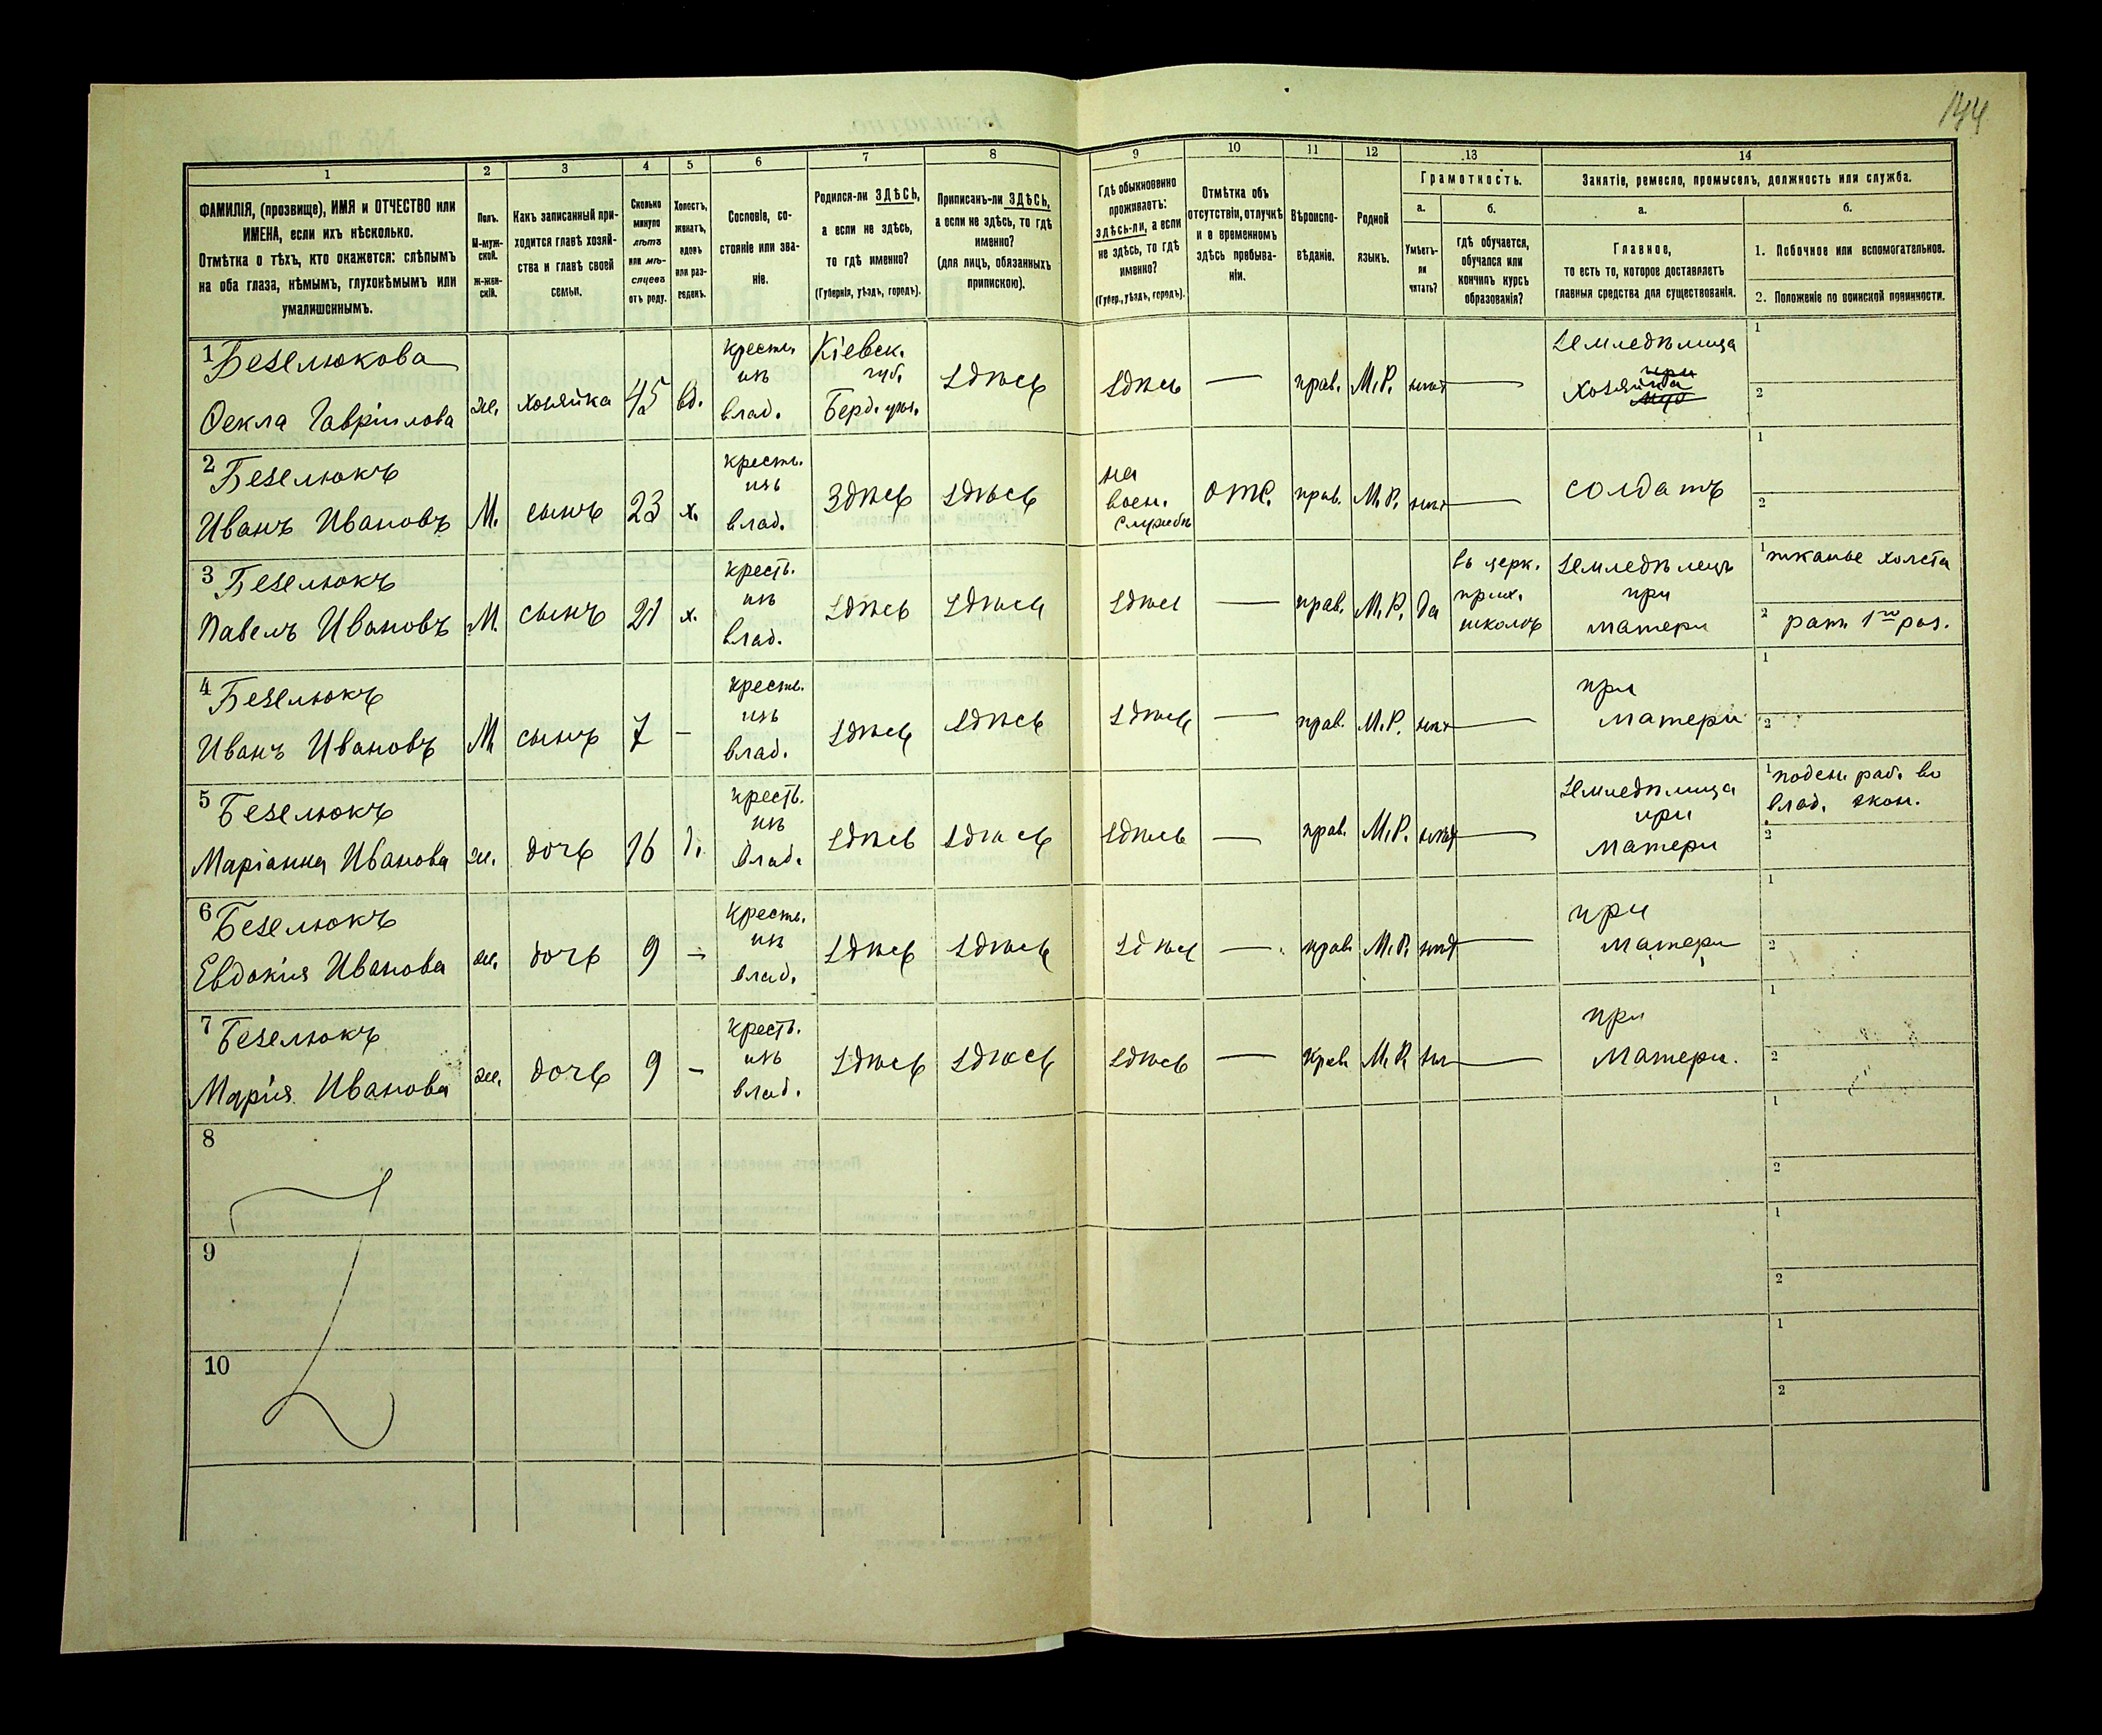 144
1
2
3
4
5
6
7
8
9
10
11
12
13
14
ФАМИЛІЯ, (прозвище), ИМЯ и ОТЧЕСТВО или
ИМЕНА, если ихъ нѣсколько.
Отмѣтка о тѣхъ, кто окажется: слѣпымъ
на оба глаза, нѣмымъ, глухонѣмымъ или
умалишеннымъ.
Полъ.
М-муж-
ской.
Ж-жен-
скій.
Какъ записанный при-
ходится главѣ хозяй-
ства и главѣ своей
семьи.
Сколько
минуло
лѣтъ
или мѣ-
сяцевъ
отъ роду.
Холостъ,
женатъ,
вдовъ
или раз-
веденъ.
Сословіе, со-
стояніе или зва-
ніе.
Родился-ли ЗДѢСЬ,
а если не здѣсь,
то гдѣ именно?
(Губернія, уѣздъ, городъ).
Приписанъ-ли ЗДѢСЬ,
а если не здѣсь, то гдѣ
именно?
(для лицъ, обязанныхъ
припискою).
Гдѣ обыкновенно
проживаетъ:
здѣсь-ли, а если
не здѣсь, то гдѣ
именно?
(Губер., уѣздъ, городъ).
Отмѣтка объ
отсутствіи, отлучкѣ
и о временномъ
здѣсь пребыва-
ніи.
Вѣроиспо-
вѣданіе.
Родной
языкъ.
Грамотность.
а.
Умѣетъ-
ли
читать?
б.
гдѣ обучается,
обучался или
кончилъ курсъ
образованія?
Занятіе, ремесло, промыселъ, должность или служба.
а.
Главное,
то есть то, которое доставляетъ
главныя средства для существованія.
б.
1. Побочное или вспомогательное.
2. Положеніе по воинской повинности.
1 Безелюкова
Ѳекла Гавріилова
же.
хозяйка
45
вд.
крестн.
изъ
влад.
Кіевск.
губ.
Берд. уѣз.
здѣсь
здѣсь
—
прав.
М.Р.
нѣт
—
земледѣлица
хозяйка
1
2
2 Безелюкъ
Иванъ Ивановъ
М.
сынъ
23
х.
крестн.
изъ
влад.
Здѣсь
здѣсь
на
воен.
службѣ
отс.
прав.
М.Р.
нѣт
—
солдатъ
1
2
3 Безелюкъ
Павелъ Ивановъ
М.
сынъ
21
х.
кресть.
изъ
влад.
здѣсь
здѣсь
здѣсь
—
прав.
М.Р.
да
въ церк.
прих.
школѣ
земледѣлецъ
при
матери
1 тканье холста
2 ратн. 1го раз.
4 Безелюкъ
Иванъ Ивановъ
М
сынъ
7
—
кресть.
изъ
влад.
здѣсь
здѣсь
здѣсь
—
прав.
М.Р.
нѣт
—
при
матери
1
2
5 Безелюкъ
Маріанна Иванова
же.
дочь
16
д.
кресть.
изъ
влад.
здѣсь
здѣсь
здѣсь
—
прав.
М.Р.
нѣт
—
земледѣлица
при
матери
1 поден. раб. во
влад. экон.
2
6 Безелюкъ
Евдокія Иванова
же.
дочь
9
—
кресть.
изъ
влад.
здѣсь
здѣсь
здѣсь
—
прав
М.Р.
нѣт
—
при
матери
1
2
7 Безелюкъ
Марія Иванова
же.
дочь
9
—
кресть.
изъ
влад.
здѣсь
здѣсь
здѣсь
—
прав
М.Р.
нѣ
—
при
матери.
1
2
8
1
2
9
1
2
10
1
2